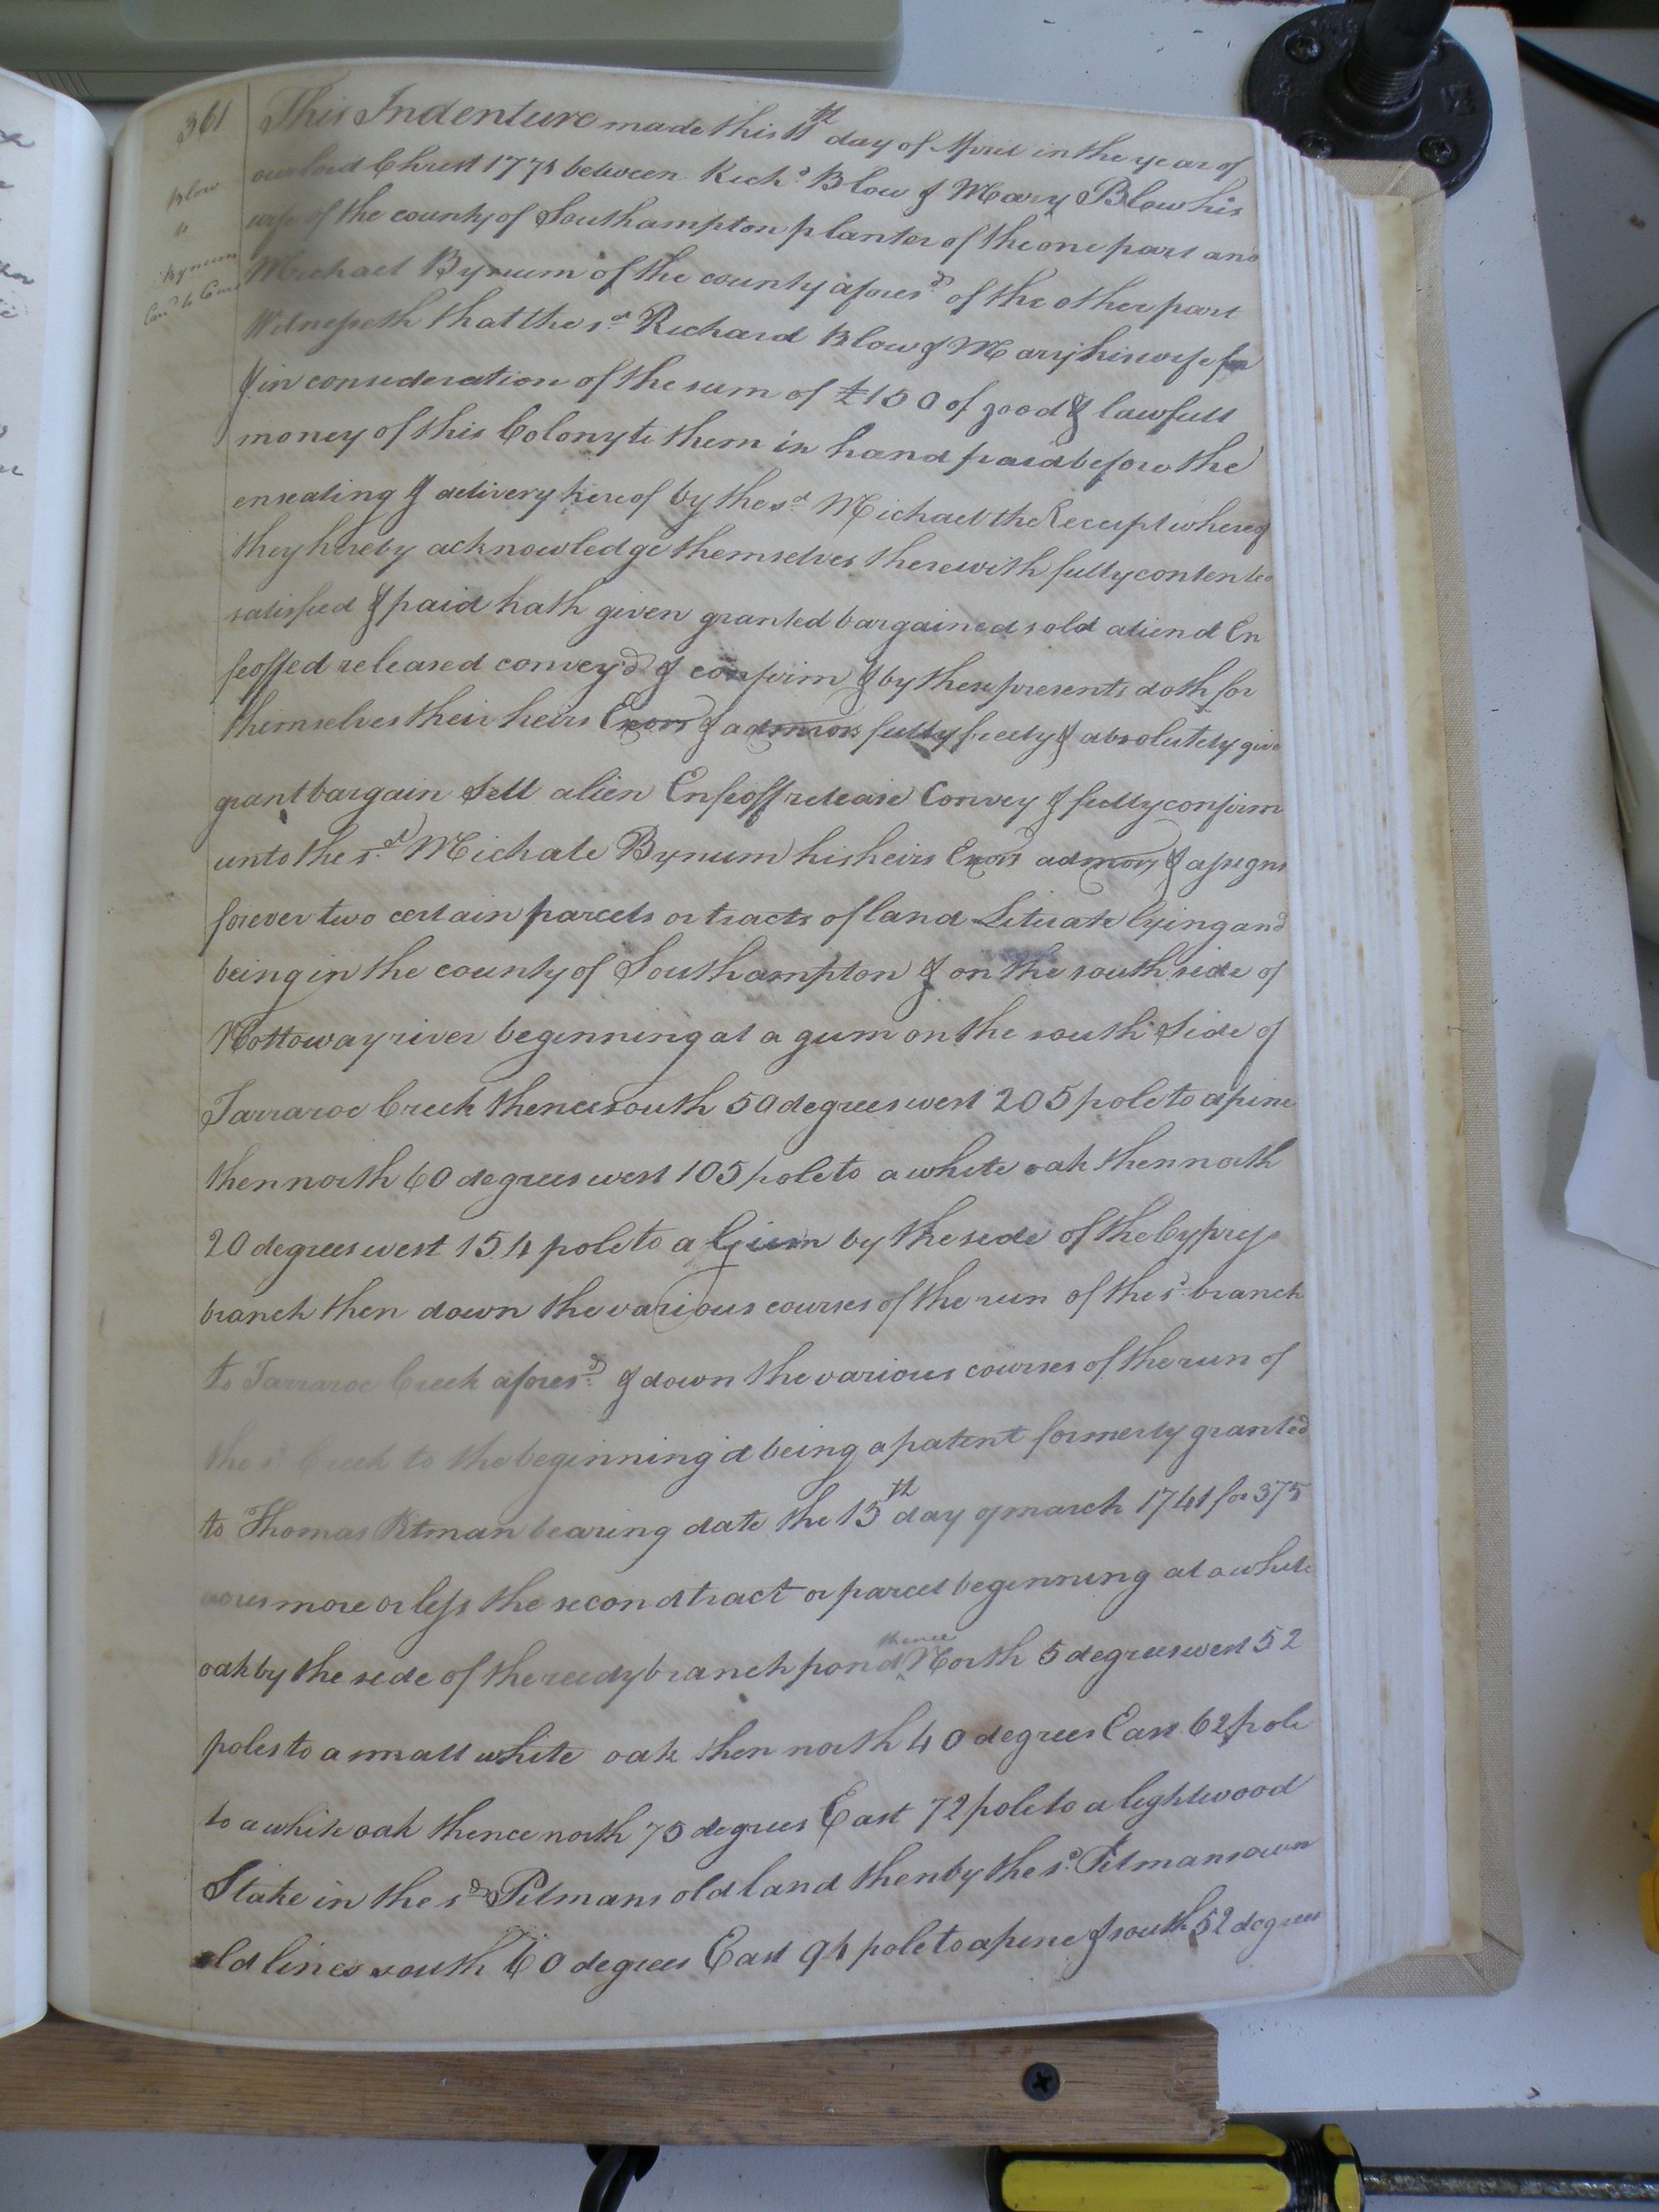 361
Blow
to
Bynum
This Indenture made this 11th day of April in the year of
our lord Christ 1774 between Richd Blow & Mary Blow his
wife of the county of Southampton planter of the one part and
Michael Bynum of the county aforesd of the other part
Witnesseth that the sd Richard Blow & Mary his wife for
& in consideration of the sum of £150 of good & lawfull
money of this Colony to them in hand paid before the
ensealing & delivery hereof by the sd Michael the Receipt whereof
they hereby acknowledge themselves therewith fully contented
satisfied & paid hath given granted bargained sold aliend En
feoffed released convey'd & confirm & by these presents doth for
themselves their heirs Exors & admors fully freely & absolutely give
grant bargain Sell alien Enfeoff release Convey & fully confirm
unto the sd Michale Bynum his heirs Exors admors & assigns
forever two certain parcels or tracts of land Situate lying and
being in the county of Southampton & on the south side of
Nottoway river beginning at a gum on the south Side of
Tarraroe Creek thence south 50 degrees west 205 pole to a pine
then north 60 degrees west 105 pole to a white oak then north
20 degrees west 154 pole to a Gum by the side of the Cypress
branch then down the various courses of the run of the sd branch
to Tarraroe Creek aforesd & down the various courses of the run of
the sd Creek to the beginning d being a patent formerly granted
to Thomas Pitman bearing date the 13th day of march 1741 for 375
acres more or less the second tract or parcel beginning at a white
oak by the side of the reedy branch pond thence North 5 degrees west 52
poles to a small white oak then north 40 degrees East 62 pole
to a white oak thence north 75 degrees East 72 pole to a lightwood
Stake in the sd Pitmans old land then by the sd Pitmans own
old lines south 60 degrees East 94 pole to a pine & south 52 degrees